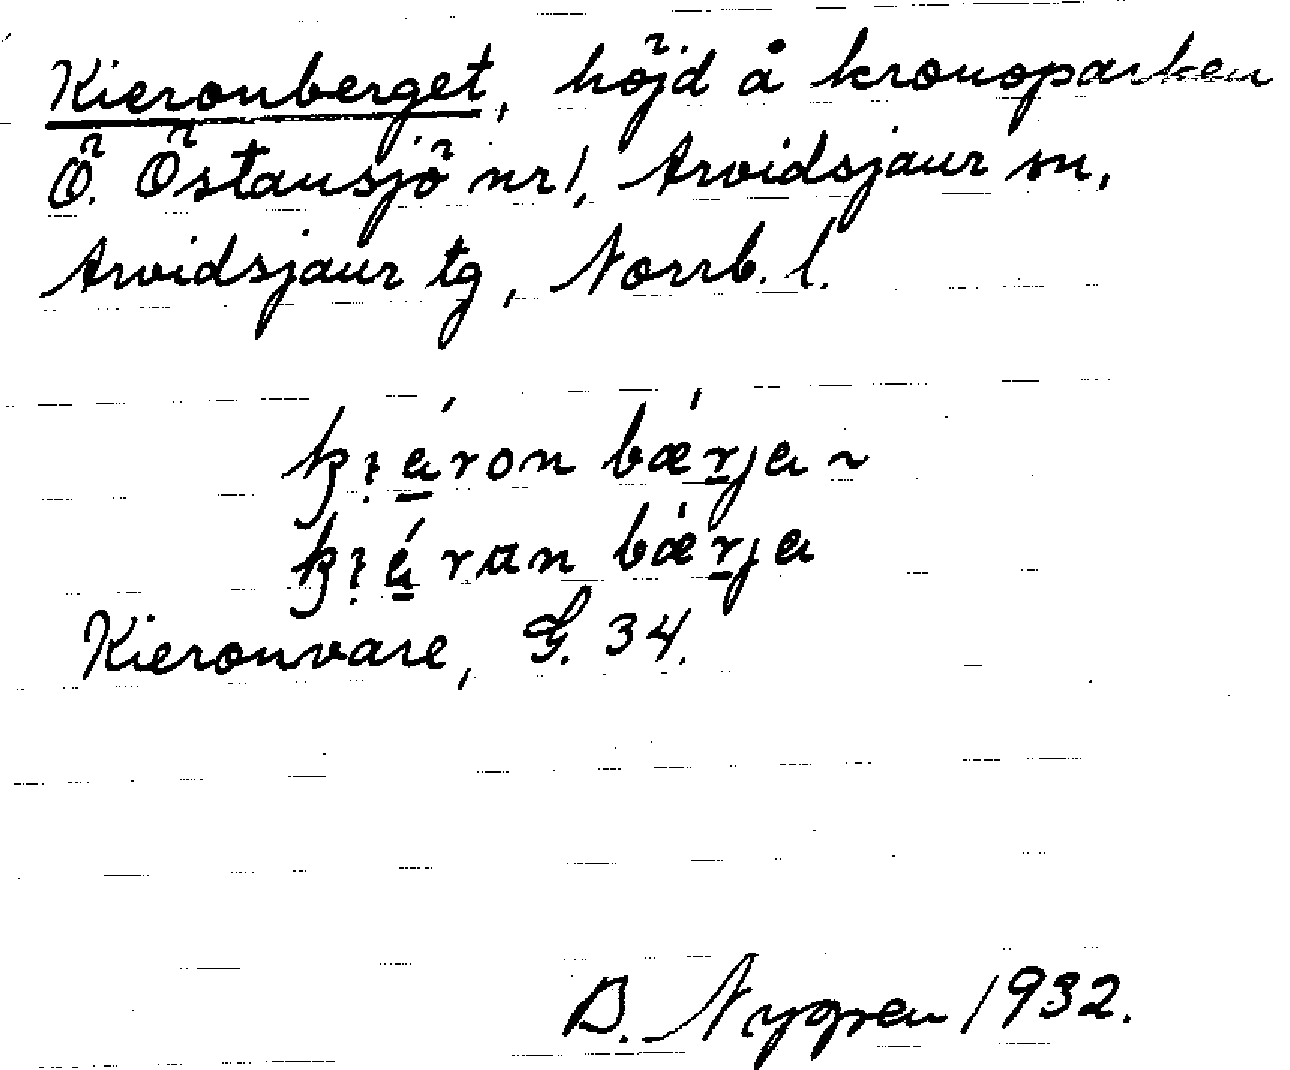 Kieronberget, höjd å kronoparken
Ö. Östansjö nr 1, Arvidsjaur sn,
Arvidsjaur tg, Norrb. l.
ḱı̣á̱ron bǽṟja ~
ḱı̣á̱ran bǽṟja
Kieronvare, G. 34.
B. Nygren 1932.